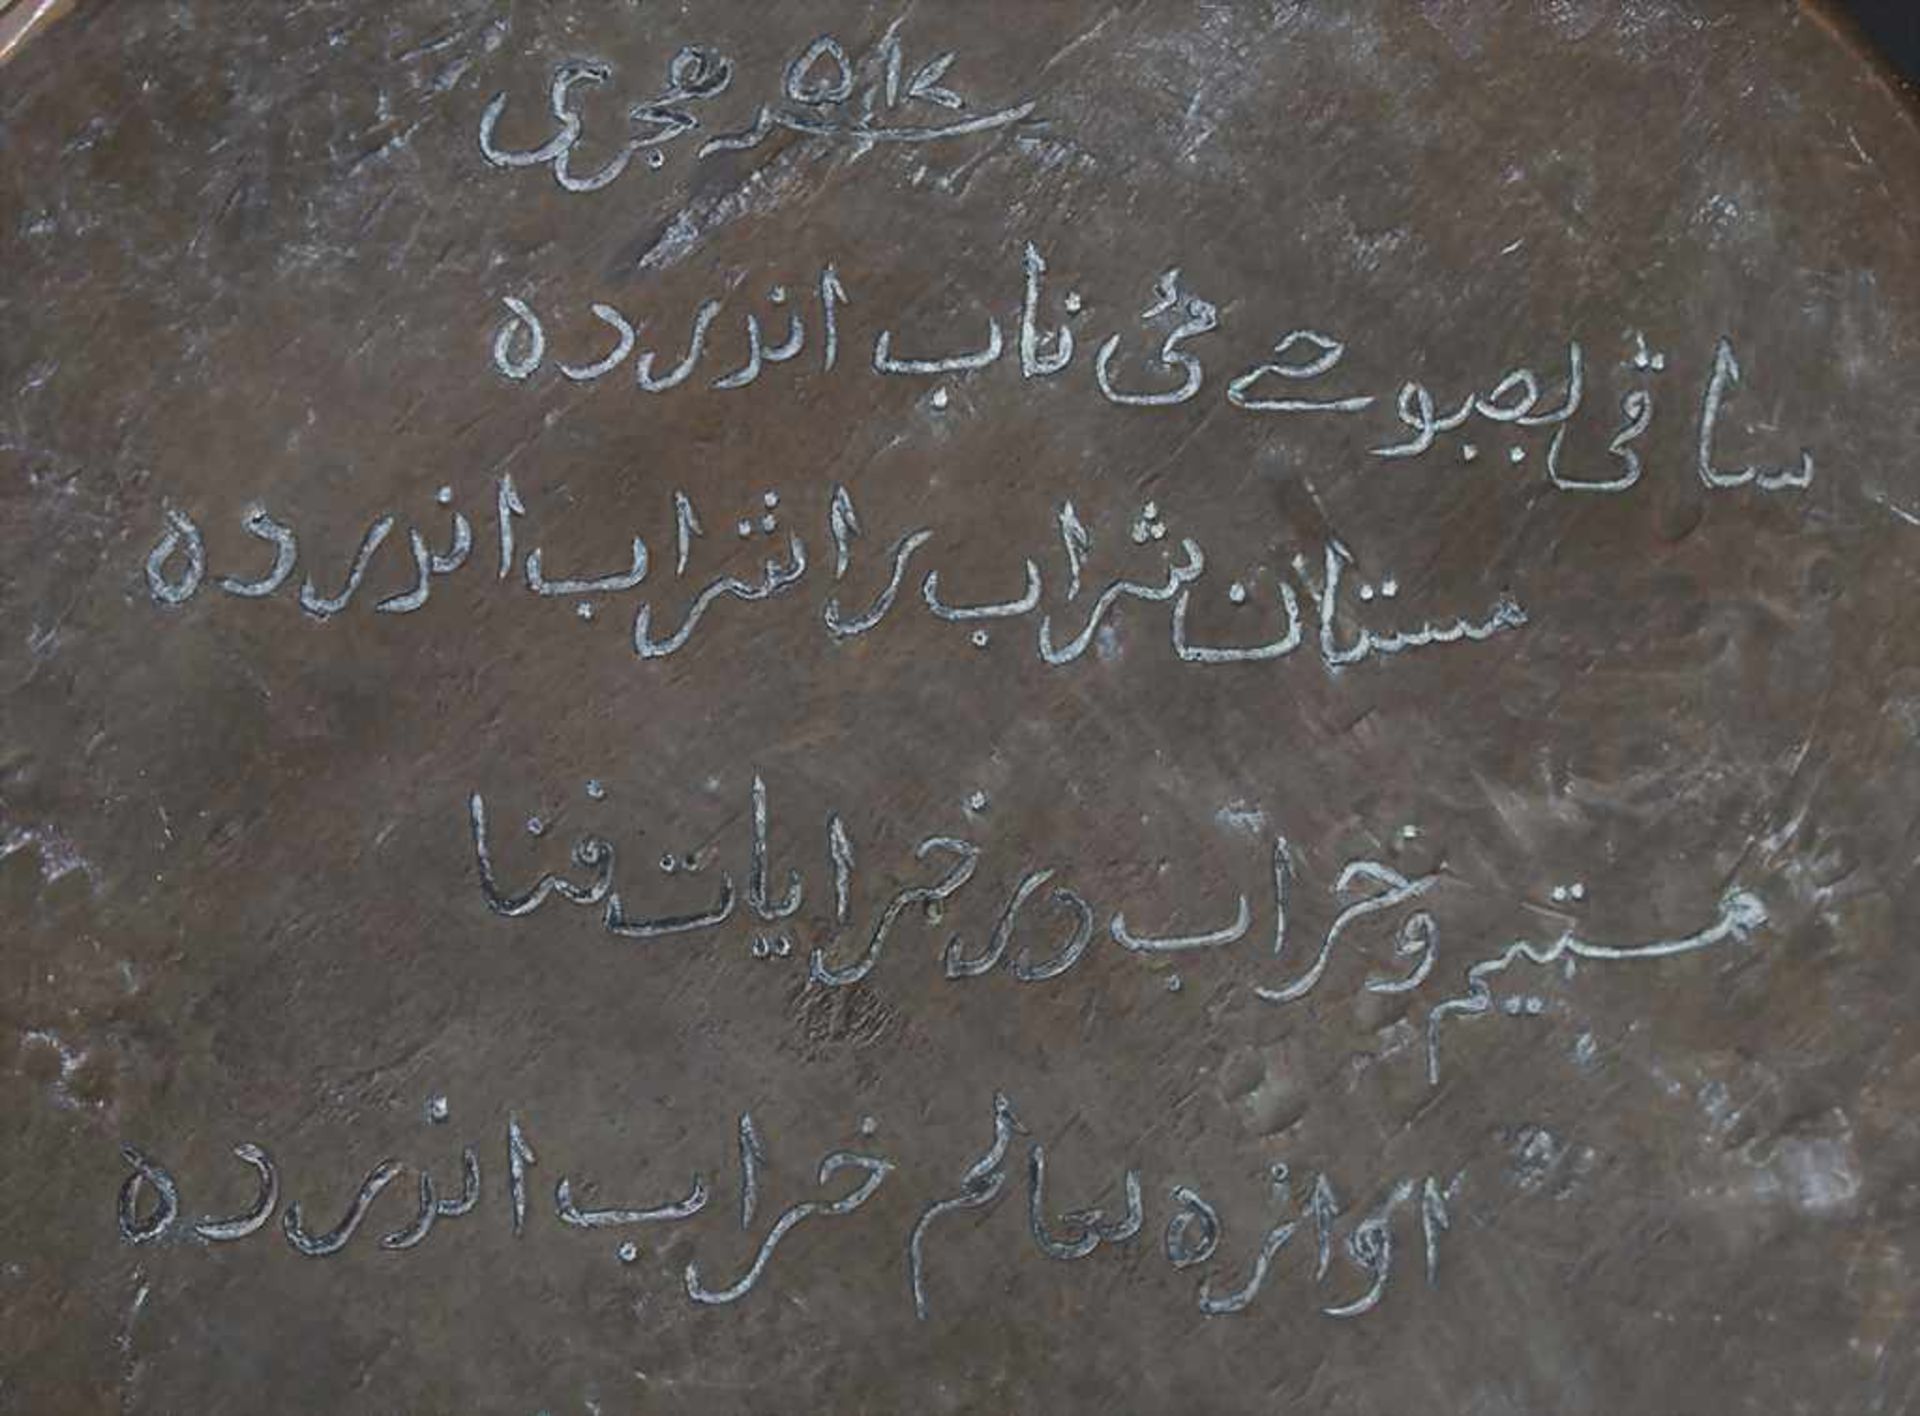 سنه هجری
ساقی بصبوحے می ناب اندر ده
مستان شراب را شراب اندر ده
مستیم و خراب در خرایات فنا
آوازه بعالم خراب اندر ده